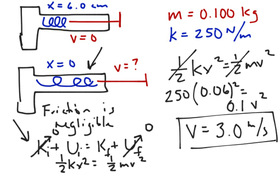 x = 6.0 cm
v = 0
x = 0
v = ?
Friction is
negligible
K_i + U_i = K_f + U_f 0
½kx² = ½mv²
m = 0.100 kg
k = 250 N/m
½kx² = ½mv²
250(0.06)² =
0.1 v²
V = 3.0 m/s